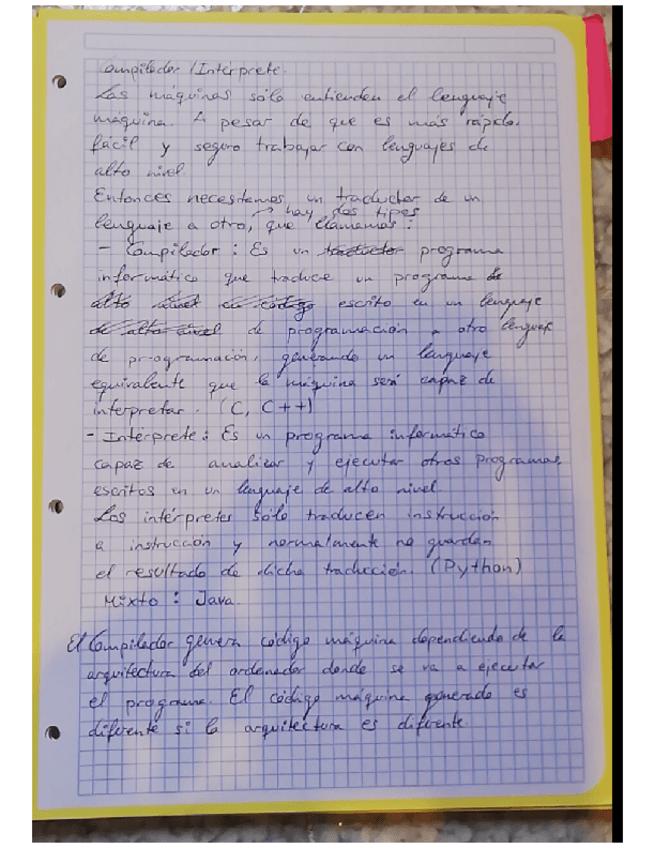 Compilador / Intérprete.
Las máquinas sólo entienden el lenguaje
maquina. A pesar de que es más rápido,
fácil y seguro trabajar con lenguajes de
alto nivel.
Entonces necesitamos un traductor de un
→ hay dos tipos
lenguaje a otro, que llamamos:
- Compilador: Es un traductor programa
informático que traduce un programa de
alto nivel en código escrito en un lenguaje
de alto nivel de programación a otro lenguaje
de programación, generando un lenguaje
equivalente que la máquina será capaz de
interpretar. (C, C++)
- Intérprete: Es un programa informático
capaz de analizar y ejecutar otros programas,
escritos en un lenguaje de alto nivel.
Los intérpretes sólo traducen instrucción
a instrucción y normalmente no guardan
el resultado de dicha traducción. (Python)
Mixto: Java.
El Compilador genera código máquina dependiendo de la
arquitectura del ordenador donde se va a ejecutar
el programa. El código máquina generado es
diferente si la arquitectura es diferente.